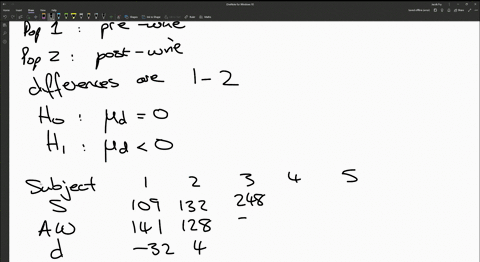 Pop 1 : pre-wine
Pop 2 : post-wine
differences are 1-2
H₀ : μd = 0
H₁ : μd < 0
Subject 1 2 3 4 5
S 109 132 248
AW 141 128 -
d -32 4